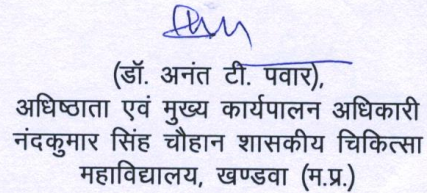 (डॉ. अनंत टी. पवार),
अधिष्ठाता एवं मुख्य कार्यपालन अधिकारी
नंदकुमार सिंह चौहान शासकीय चिकित्सा
महाविद्यालय, खण्डवा (म.प्र.)